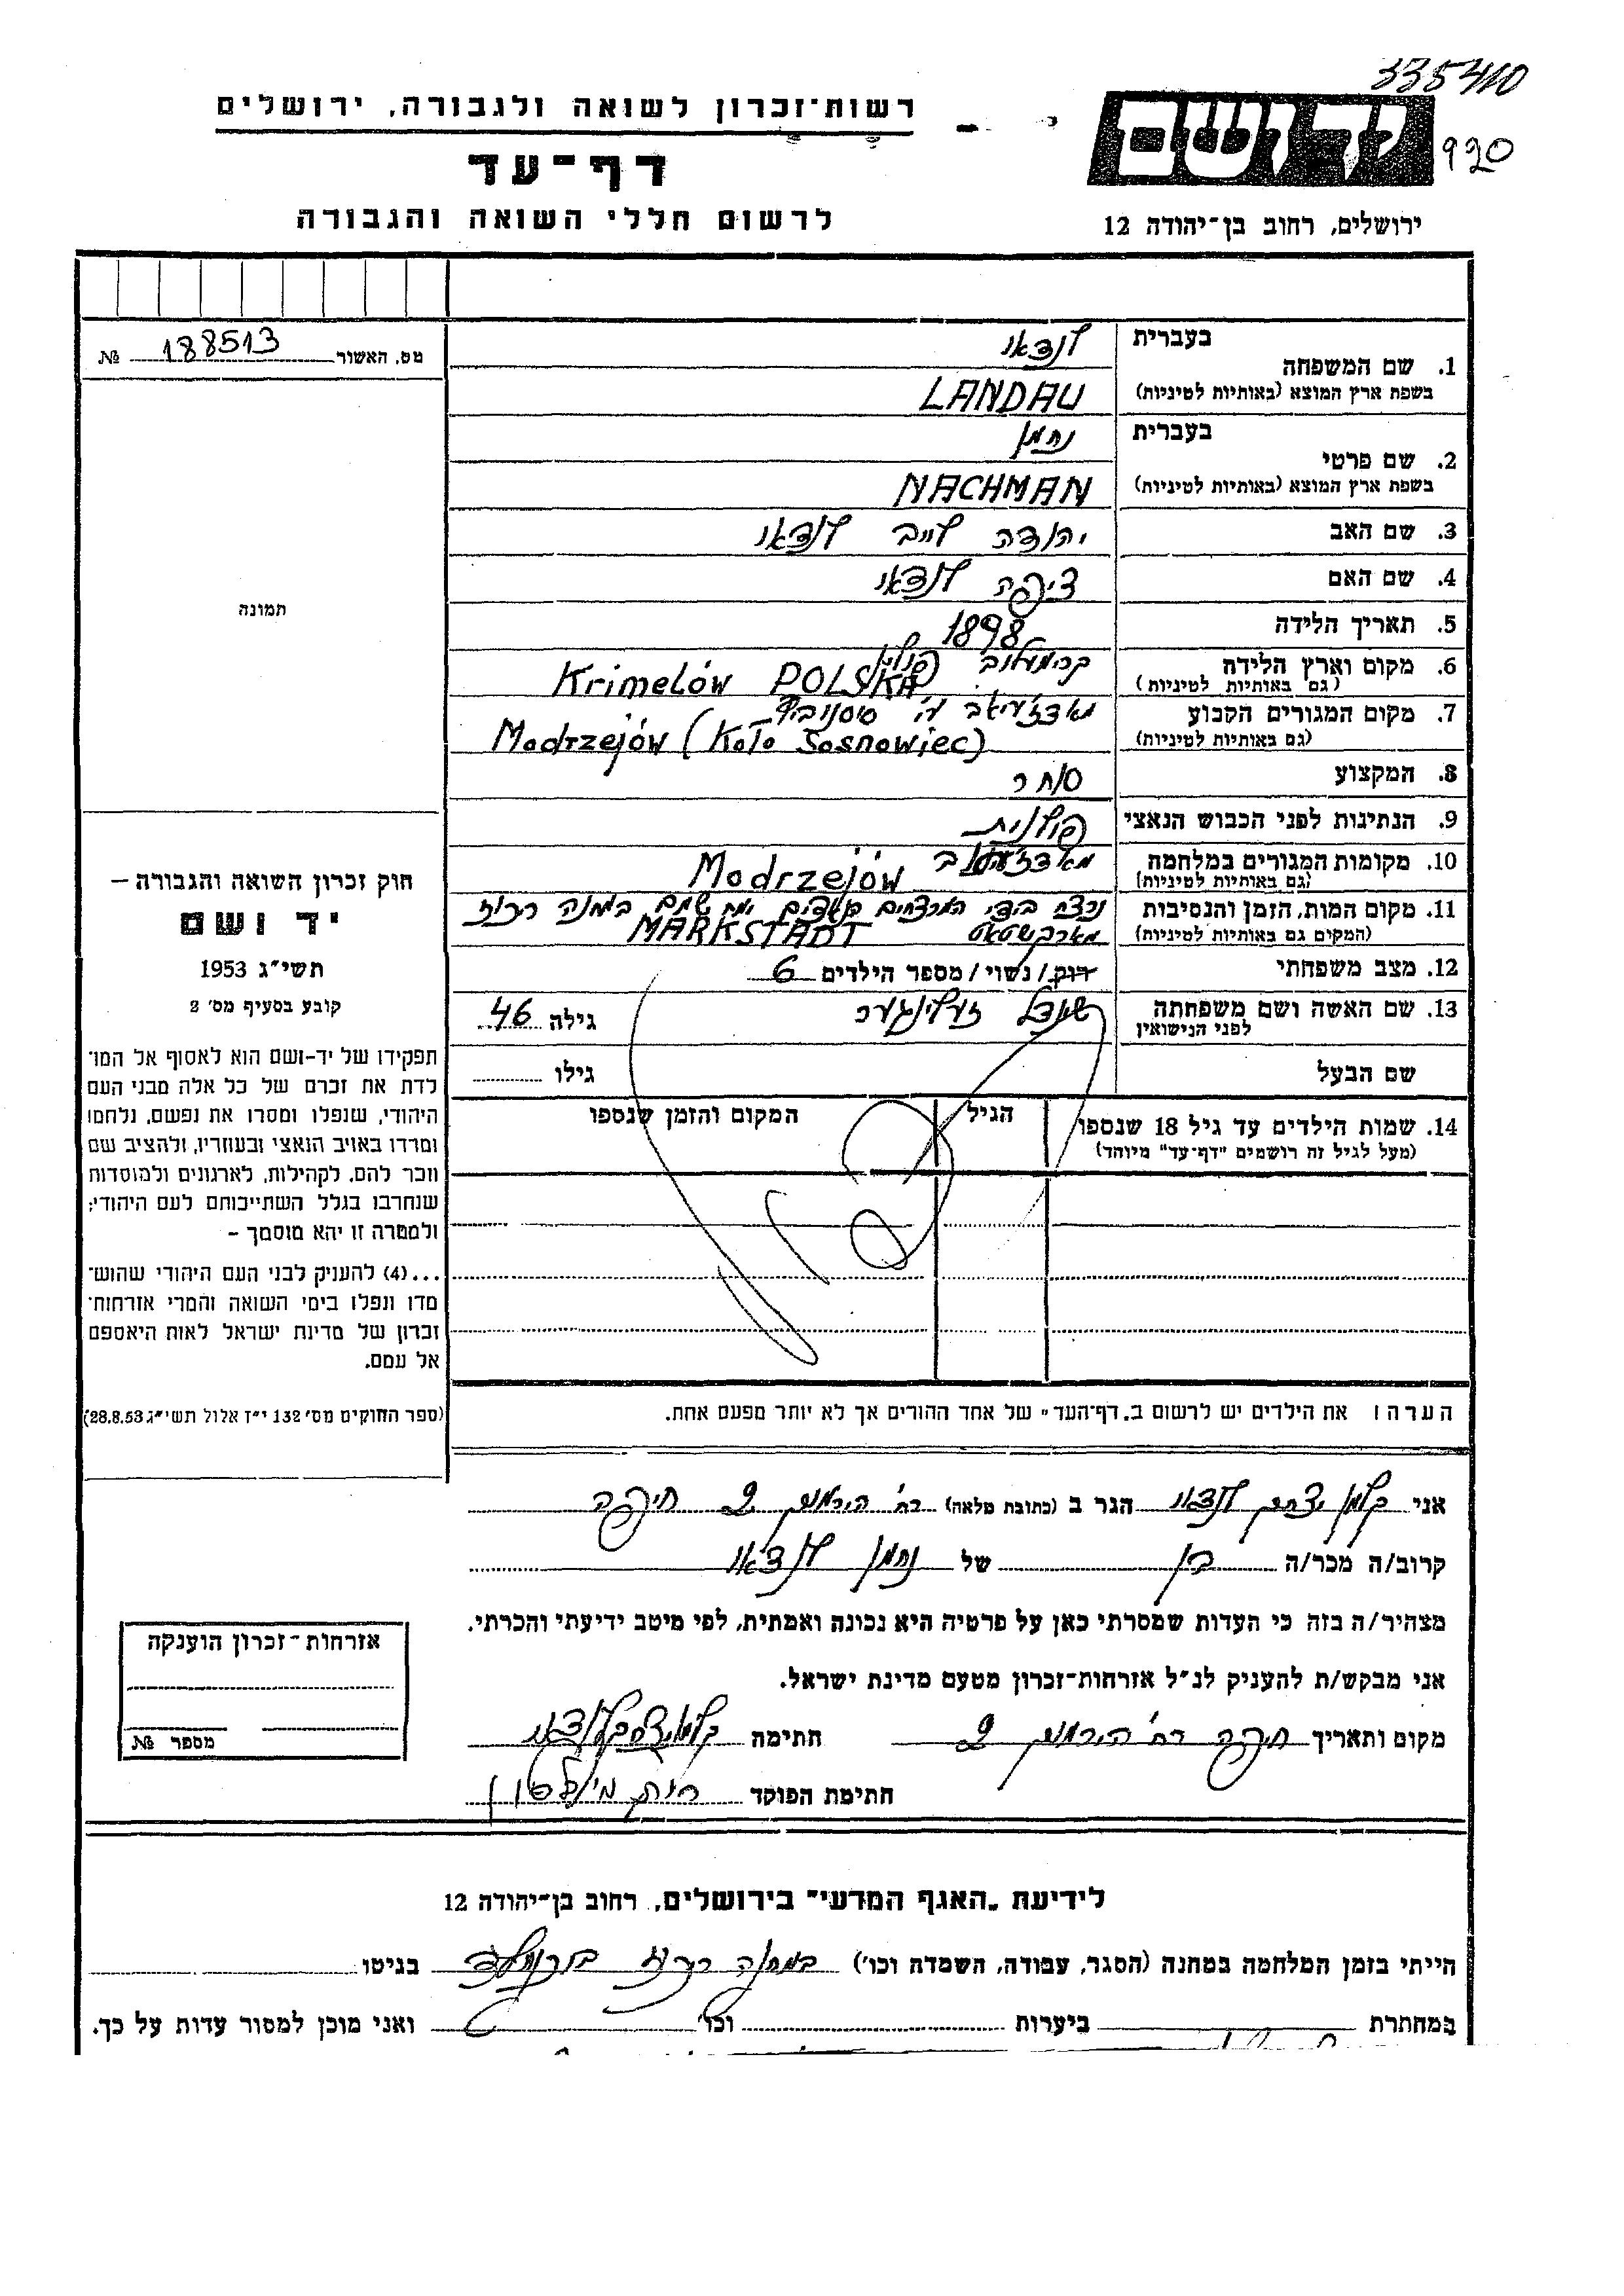 335410
920
יד ושם
ירושלים, רחוב בן־יהודה 12
רשות־זכרון לשואה ולגבורה, ירושלים
דף־עד
לרשום חללי השואה והגבורה
מס. האשור 188513 №
תמונה
חוק זכרון השואה והגבורה –
יד ושם
תשי״ג 1953
קובע בסעיף מס׳ 2
תפקידו של יד-ושם הוא לאסוף אל המו־
לדת את זכרם של כל אלה מבני העם
היהודי, שנפלו ומסרו את נפשם, נלחמו
ומרדו באויב הנאצי ובעוזריו, ולהציב שם
וזכר להם, לקהילות, לארגונים ולמוסדות
שנחרבו בגלל השתייכותם לעם היהודי;
ולמטרה זו יהא מוסמך –
...(4) להעניק לבני העם היהודי שהוש־
מדו ונפלו בימי השואה והמרי אזרחות־
זכרון של מדינת ישראל לאות היאספם
אל עמם.
(ספר החוקים מס׳ 132 י״ז אלול תשי״ג 28.8.53)
בעברית לנדאו
1. שם המשפחה
בשפת ארץ המוצא (באותיות לטיניות) LANDAU
בעברית נחמן
2. שם פרטי
בשפת ארץ המוצא (באותיות לטיניות) NACHMAN
3. שם האב יהודה לייב לנדאו
4. שם האם ציפה לנדאו
5. תאריך הלידה 1898
6. מקום וארץ הלידה קרימלוב פולין
(גם באותיות לטיניות) Krimelów POLSKA
7. מקום המגורים הקבוע מאדז׳עיאב ע׳י סוסנוביץ
(גם באותיות לטיניות) Modrzejów (Koło Sosnowiec)
8. המקצוע סוחר
9. הנתינות לפני הכבוש הנאצי פולנית
10. מקומות המגורים במלחמה Modrzejów
(גם באותיות לטיניות)
11. מקום המות, הזמן והנסיבות נרצח בידי המרצחים ימח שמם במחנה ריכוז
(המקום גם באותיות לטיניות) מארקשטאט MARKSTADT
12. מצב משפחתי רוק/נשוי/מספר הילדים 6
13. שם האשה ושם משפחתה שינדל זעלינגער גילה 46
לפני הנישואין
שם הבעל גילו
14. שמות הילדים עד גיל 18 שנספו הגיל המקום והזמן שנספו
(מעל לגיל זה רושמים "דף־עד" מיוחד)
הערה ו את הילדים יש לרשום ב„דף־העד" של אחד ההורים אך לא יותר מפעם אחת.
אני קלמן יצחק לנדאו הגר ב (כתובת מלאה) רח׳ הירמוק 2 חיפה
קרוב/ה מכר/ה בן של נחמן לנדאו
מצהיר/ה בזה כי העדות שמסרתי כאן על פרטיה היא נכונה ואמתית, לפי מיטב ידיעתי והכרתי.
אני מבקש/ת להעניק לנ״ל אזרחות-זכרון מטעם מדינת ישראל.
מקום ותאריך חיפה רח׳ הירמוק 2 חתימה קלמן יצחק לנדאו
חתימת הפוקד
אזרחות־זכרון הוענקה
מספר №
לידיעת „האגף המדעי" בירושלים, רחוב בן־יהודה 12
הייתי בזמן המלחמה במחנה (הסגר, עבודה, השמדה וכו׳) במחנה ריכוז בוכנוואלד בגיטו
במחתרת ביערות וכו׳ ואני מוכן למסור עדות על כך.